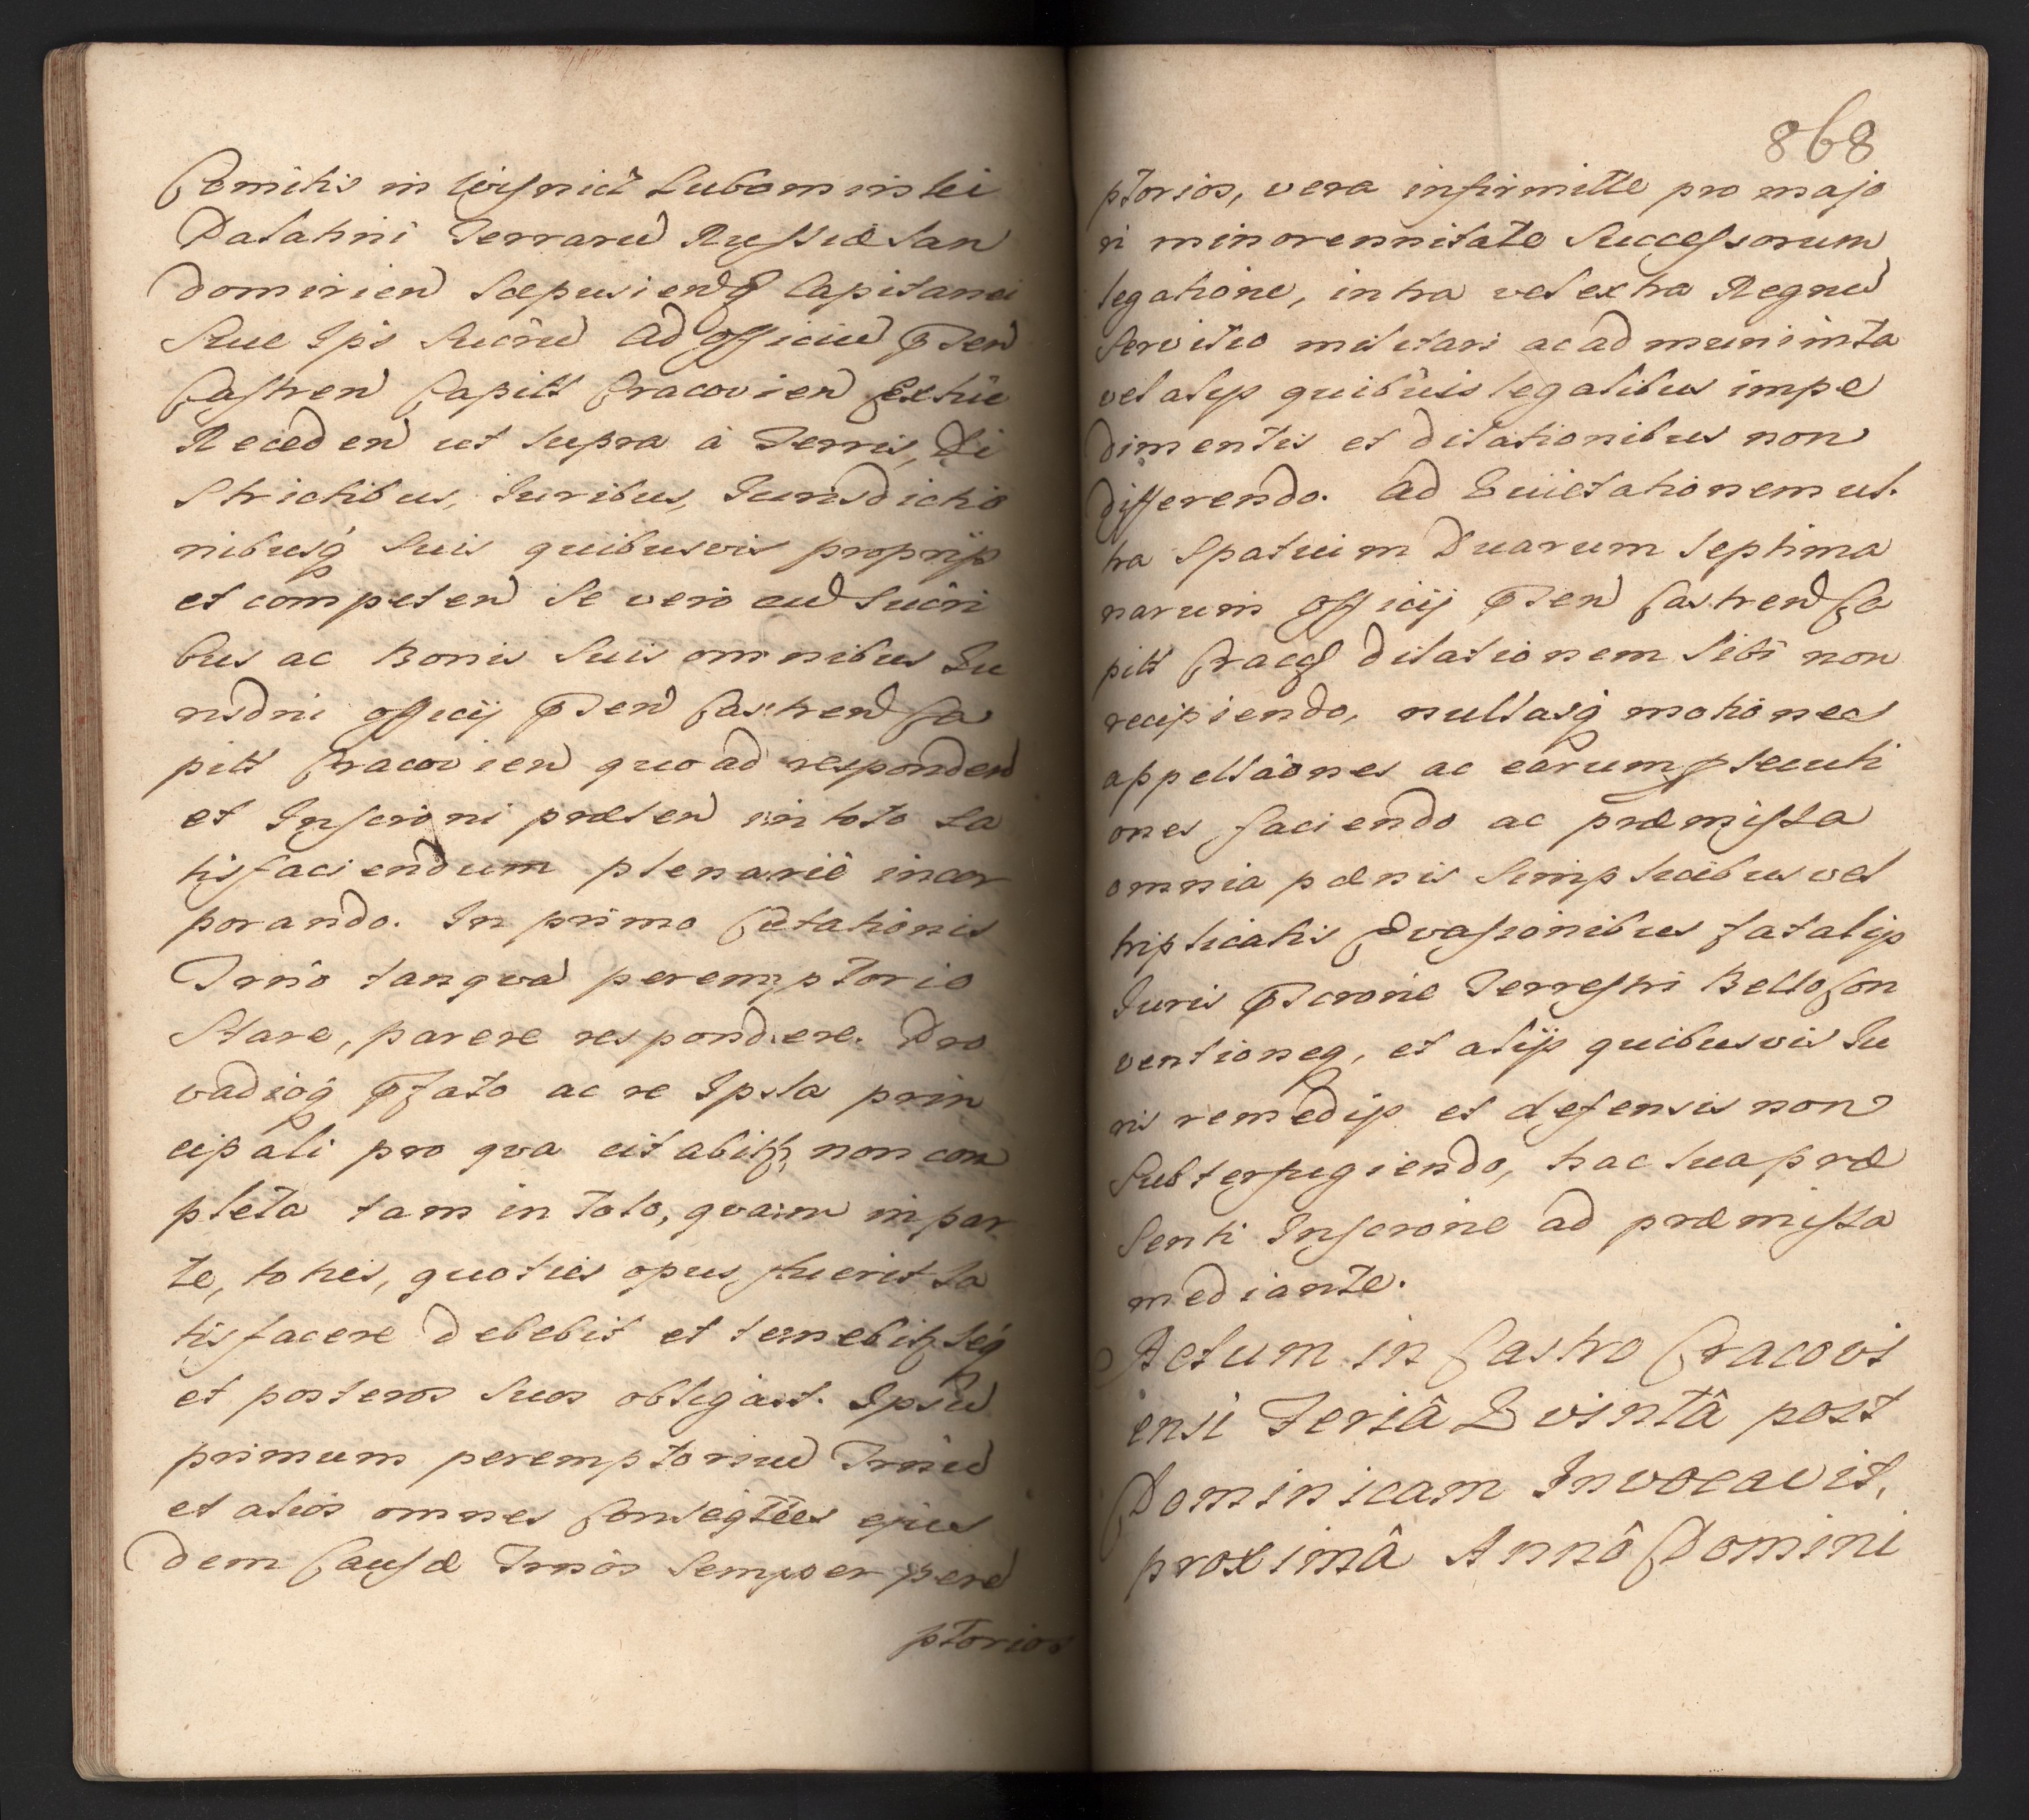 Comitis in Wisnicz Lubomirski
Palatini Terrarũ Russiæ San
domirien Scæpusienq Capitanei
Sive Ips Sucrũ ad officiũ pñten
Castren Capitt Cracovien Extũe
Receden ut supra à Terris, Di
strictibus, Iuribus, Iurisdictio
nibusq́ suis quibusvis proprijs
et competen Se vero cũ Sucri
bus ac Bonis Suis omnibus Iu
risdni officij pñten Castren Ca
pitt Cracovien quoad responden
et Inscrioni præsen in toto Sa
tisfaciendum plenariè incor
porando. In primo Citationis
Trño tanqvã peremptorio
Stare, parere respondere. Pro
vadioq́ pfato ac re Ipsa prin
cipali pro qva citabitr, non com
pleta tam in toto, qvam in par
te, toties, quoties opus fuerit Sa
tisfacere debebit et tenebitr Seq́
et posteros Suos obligavit. Ipsũ
primum peremptoriũ Trñũ
et alios omnes Conseqtes ejus
dem Causæ Trños Semper perẽ
ptorios
868
ptorios, vera infirmitte pro majo
ri minorennitate Successorum
legatione, intra vel extra Regnũ
Servitio militari ac ad munimta
vel alijs quibũis legalibus impe
dimentis et dilationibus non
differendo. Ad Quietationem ul.
tra Spatium Duarum Septima
narum officij pñten Castren Ca
pitt Cracq dilationem Sibi non
recipiendo, nullasq́ motiones
appellãones ac earum pseuti
ones faciendo ac præmissa
omnia pænis Simplicibus vel
triplicatis Evasionibus fatalijs
Iuris pscrone Terrestri Bello Con
ventioneq, et alijs quibusvis Iu
ris remedijs et defensis non
Subterfugiendo, hac Sua præ
senti Inscrone ad præmissa
mediante.
Actum in Castro Cracovi
ensi Feriâ Qvintâ post
Dominicam Invocavit,
proximâ Annô Domini